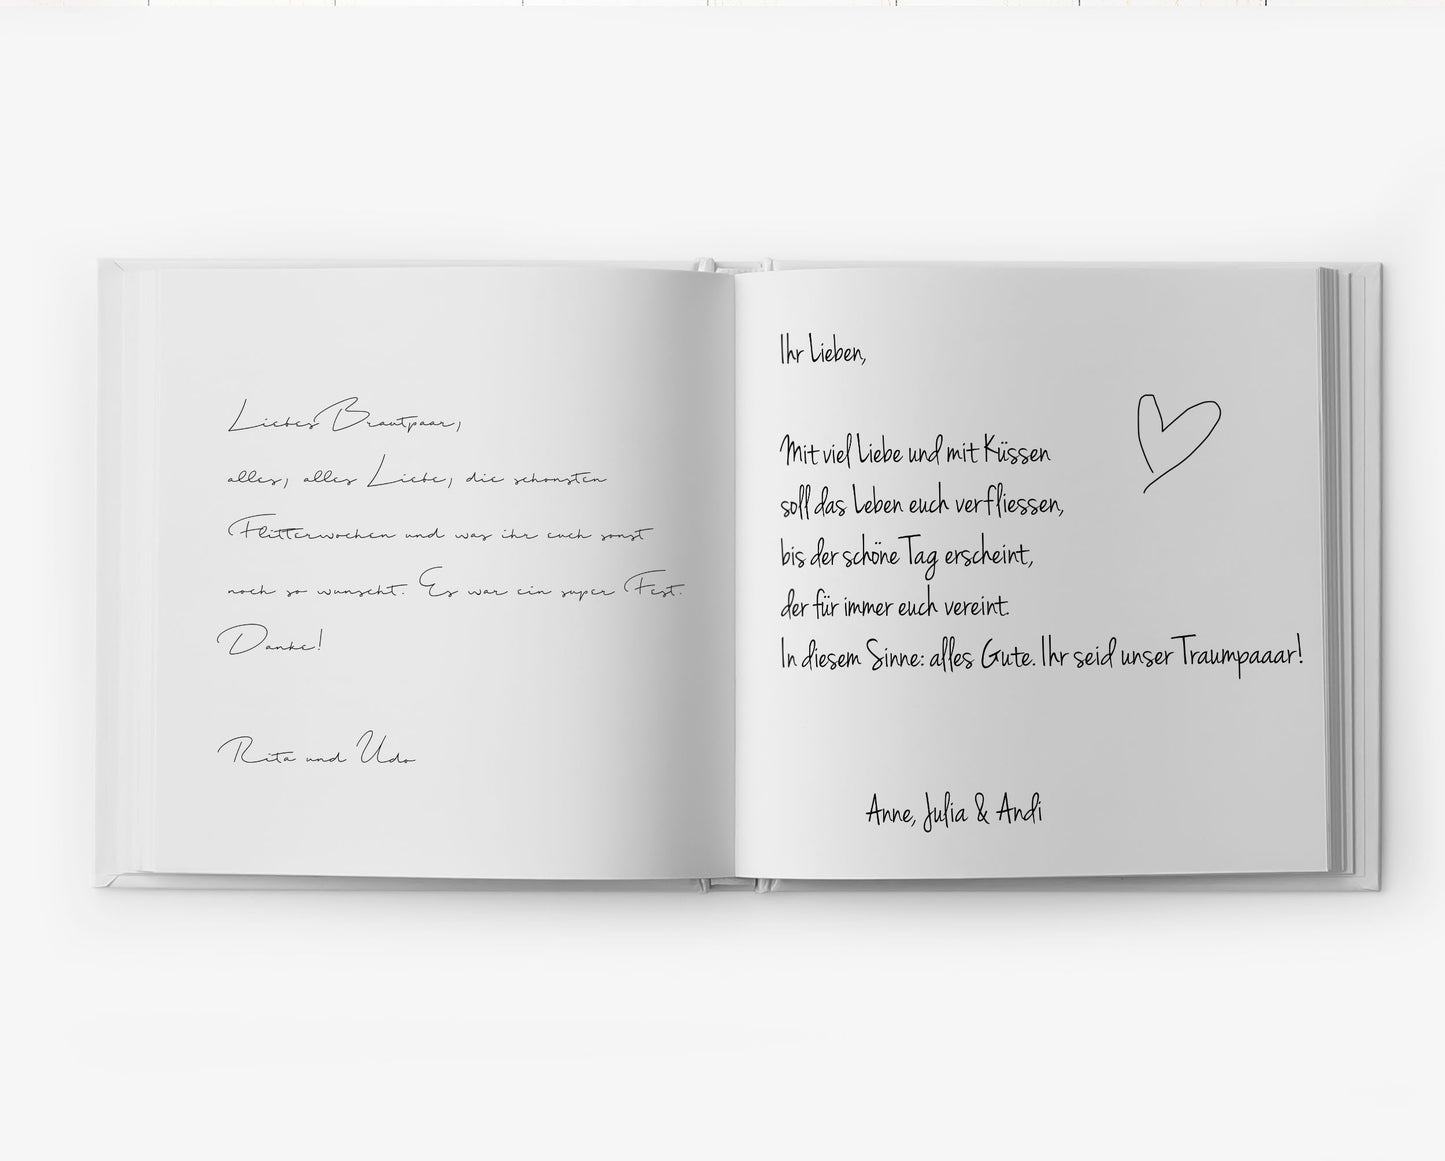 Liebes Brautpaar,
alles, alles Liebe, die schonsten
Flitterwochen und was ihr euch sonst
noch so wunscht. Es war ein super Fest.
Danke!
Rita und Udo
Ihr Lieben,
Mit viel Liebe und mit Küssen
soll das Leben euch verfliessen,
bis der schöne Tag erscheint,
der für immer euch vereint.
In diesem Sinne: alles Gute. Ihr seid unser Traumpaaar!
Anne, Julia & Andi